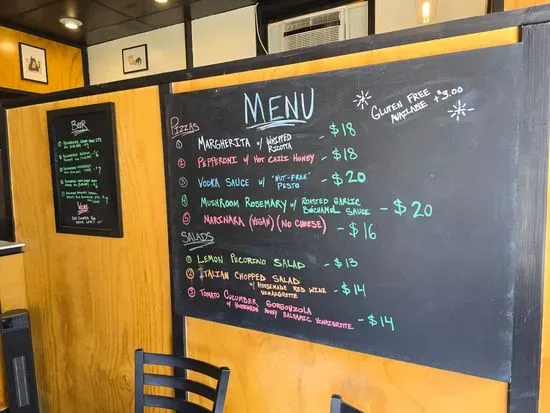 MENU
GLUTEN FREE
AVAILABLE +3.00
PIZZAS
1 MARGHERITA w/ WHIPPED - $18
RICOTTA
2 PEPPERONI w/ HOT CALI HONEY - $18
3 VODKA SAUCE w/ "NUT-FREE" - $20
PESTO
4 MUSHROOM ROSEMARY w/ ROASTED GARLIC - $20
BÉCHAMEL SAUCE
5 MARINARA (VEGAN) (NO CHEESE) - $16
SALADS
1 LEMON PECORINO SALAD - $13
2 ITALIAN CHOPPED SALAD - $14
w/ HOUSEMADE RED WINE
VINAIGRETTE
3 TOMATO CUCUMBER GORGONZOLA
w/ HOMEMADE HONEY BALSAMIC VINAIGRETTE - $14
BEER
WINE